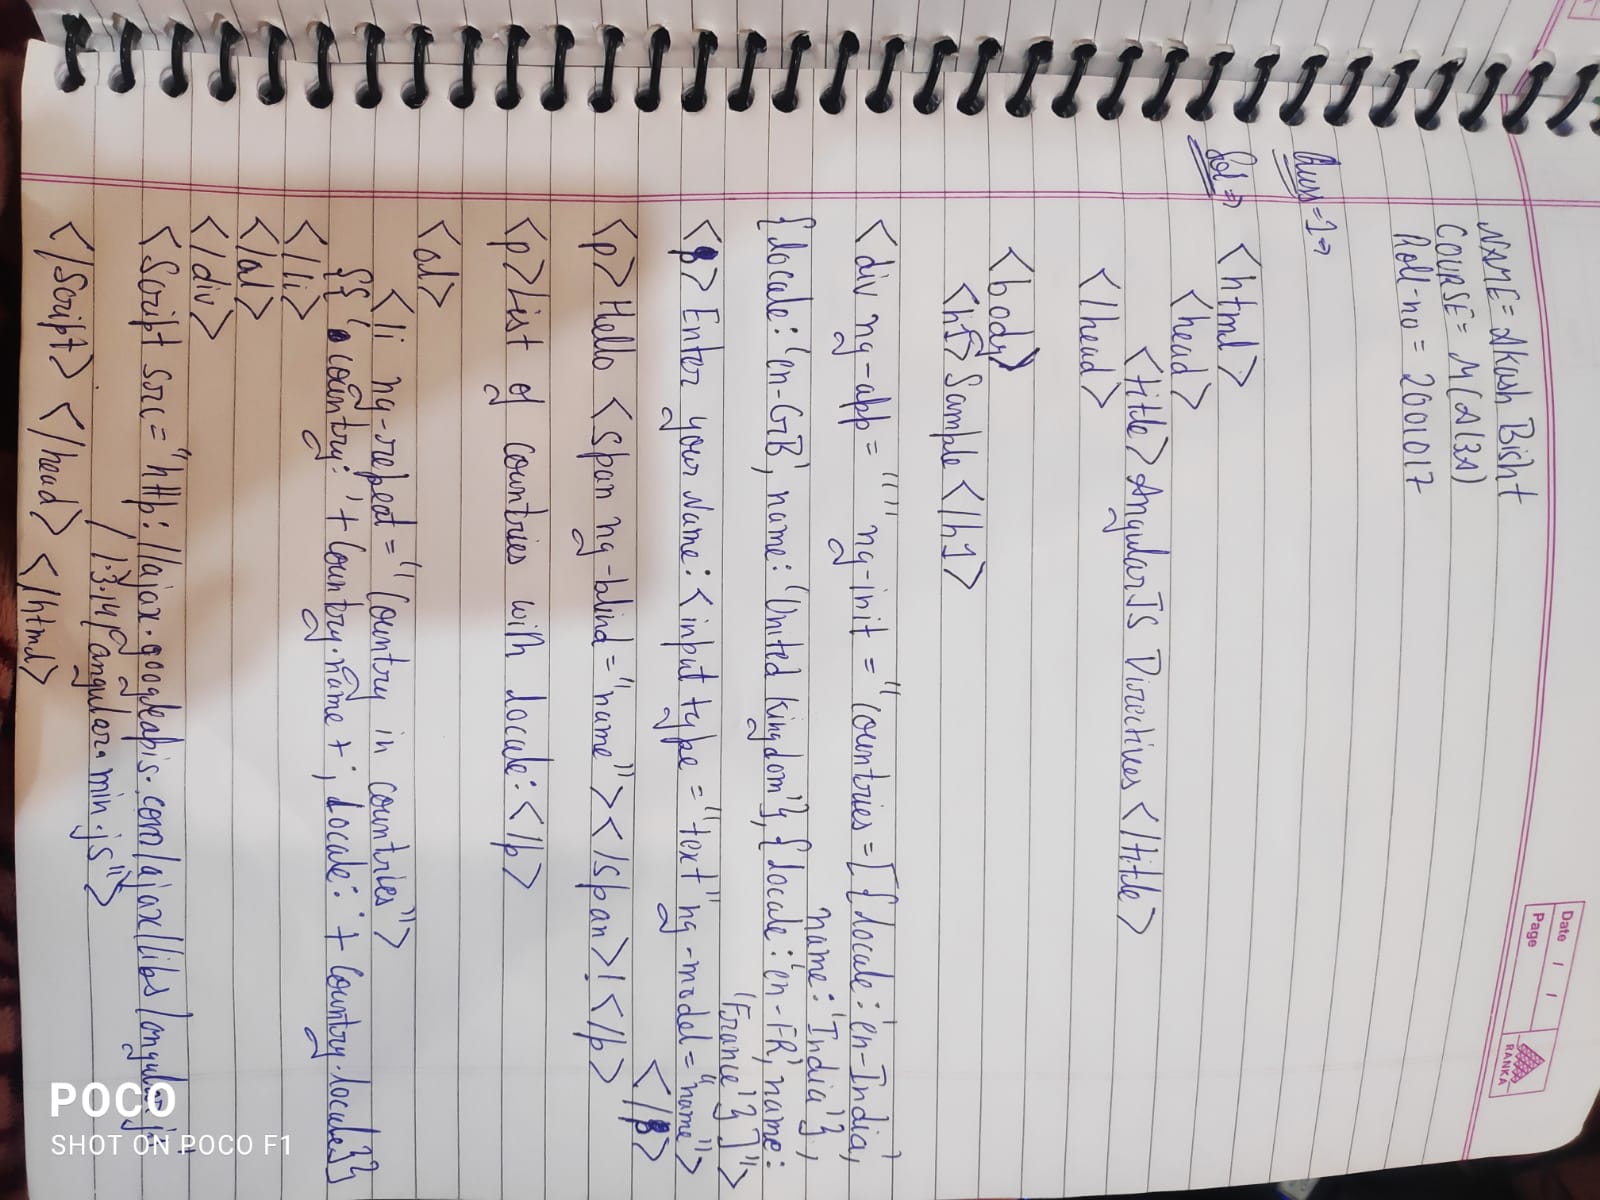 Date / /
Page
RANKA
NAME= Akash Bisht
COURSE= MCA(3A)
Roll-no = 2001017
Ans=1⇒
Sol⇒ <html>
<head>
<title> AngularJS Directives </title>
</head>
<body>
<h1> Sample </h1>
<div ng-app = "" ng-init = "Countries = [{locale: 'en-India',
name: 'India'},
{locale: 'en-GB', name: 'United Kingdom'}, {locale: 'en-FR', name:
'France'}]">
<p> Enter your Name: <input type = "text" ng-model = "name">
</p>
<p> Hello <span ng-bind = "name"></span>!</p>
<p> List of countries with locale: </p>
<ol>
<li ng-repeat = "Country in countries">
{{ 'country: ' + Country.name + ', locale: ' + Country.locale}}
</li>
</ol>
</div>
<Script src = "http://ajax.googleapis.com/ajax/libs/angularjs
/1.3.14/angular.min.js">
</Script> </head> </html>
POCO
SHOT ON POCO F1